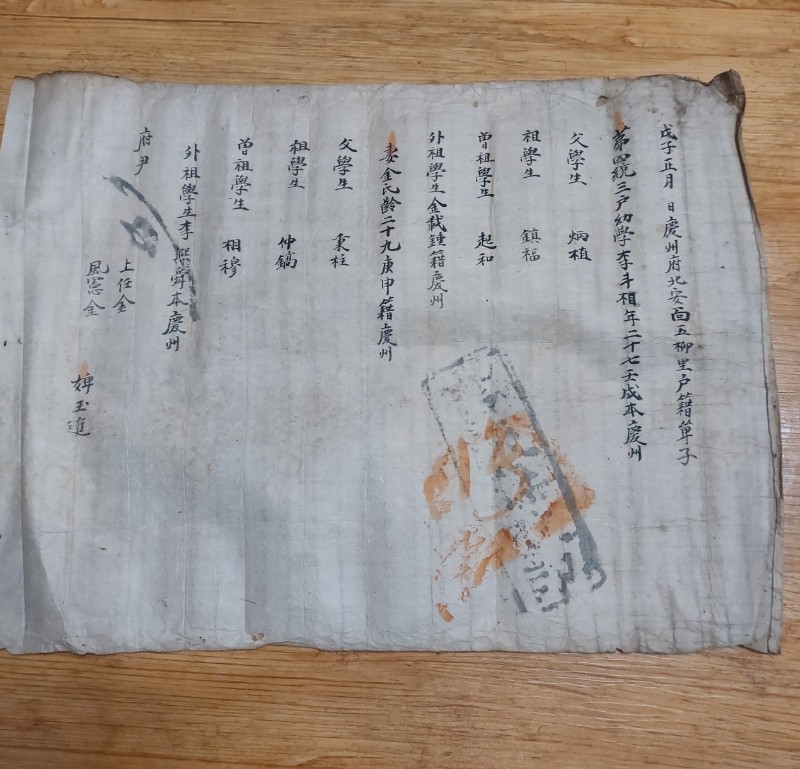 戊子正月 日慶州府北安面五柳里戶籍單子
第四統三戶幼學李斗相年二十七壬戌本慶州
父學生 炳植
祖學生 鎭福
曾祖學生 起和
外祖學生金載鍾籍慶州
妻金氏齡二十九庚申籍慶州
父學生 秉柱
祖學生 仲鎬
曾祖學生 相穆
外祖學生李 舜本慶州
府尹
上任金
風憲金
婢玉進